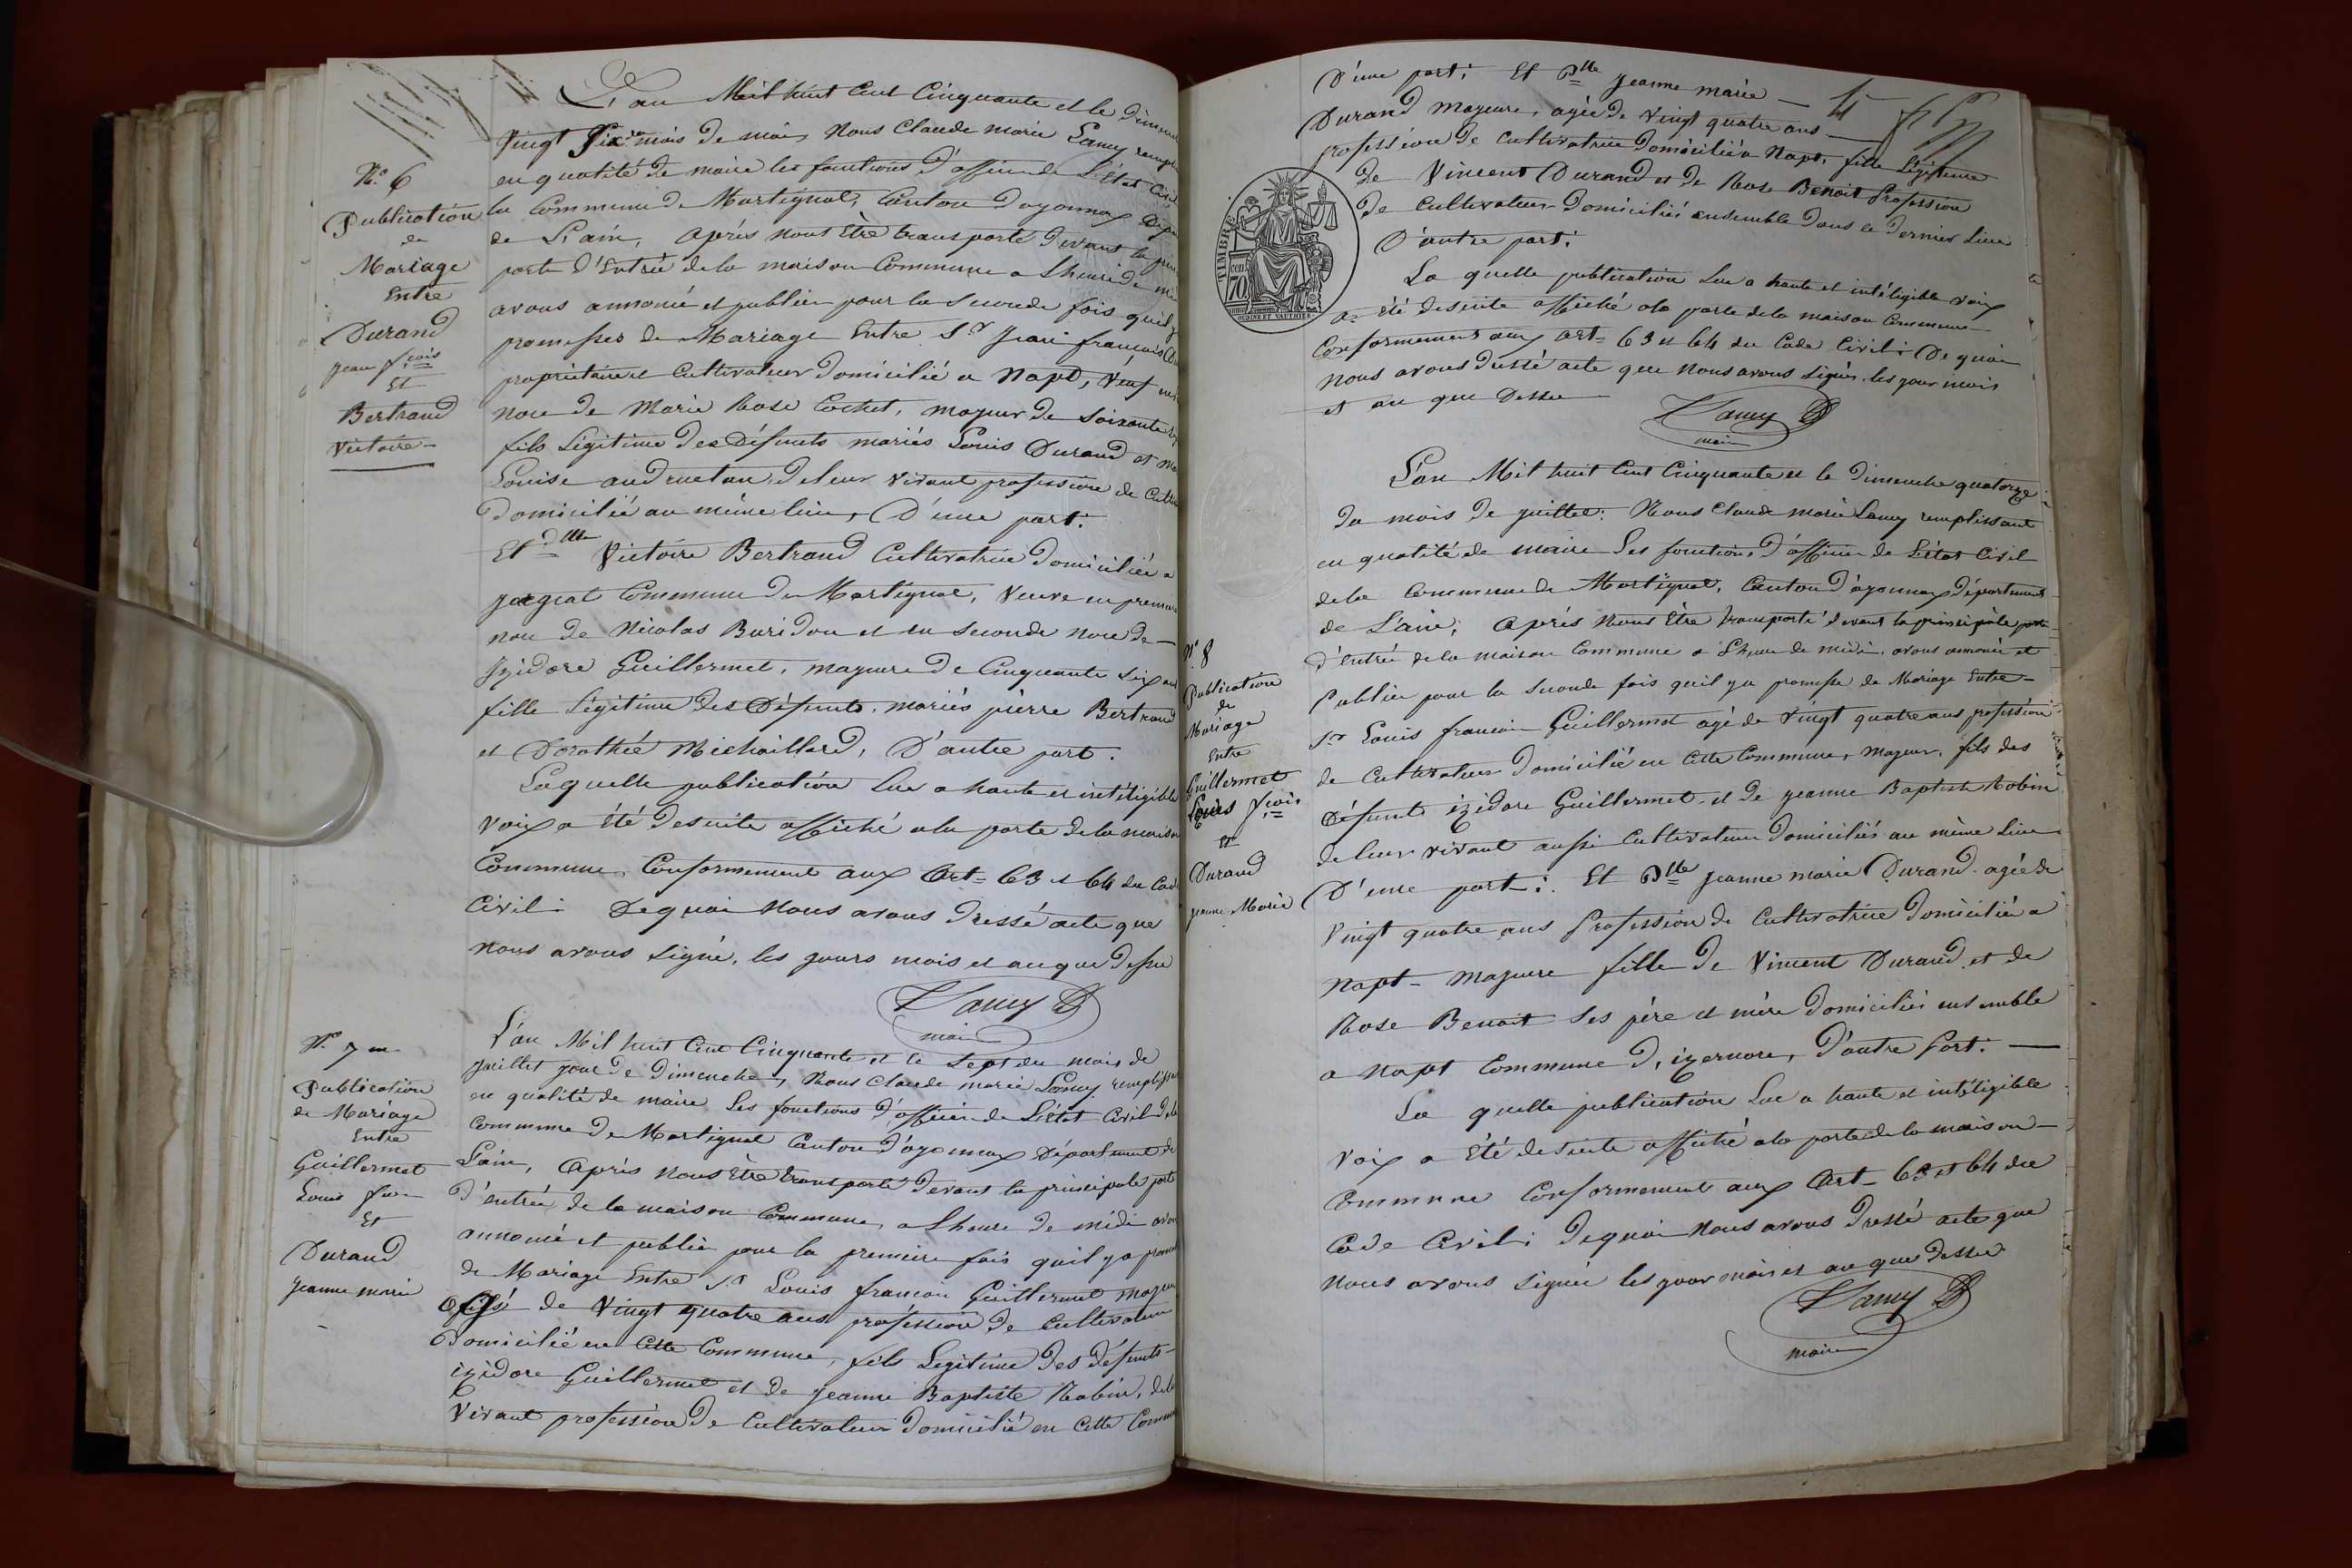 L'an Mil huit Cent Cinquante et le Dimanche
Vingt Six du mois de mai, Nous Claude marie Lamy
en qualité de maire les fonctions d'officier de L'Etat Civil
la Commune de Martignat, Canton d'oyonnax
de L'ain, Après nous Etre transporté devant la
porte d'Entrée de la maison Commune a Lheure de
avons annoncé et publier pour la seconde fois quil
promesses de Mariage Entre Sr Jean françois
propriétaire et Cultivateur Domicilié a Napt, Veuf
noce de Marie Rose Cochet, mageur de Soixante
fils Légitime des Défunts mariés Louis Durand et
Louise andruetan, de leur vivant profession de
Domicilié au même lieu, D'une part:
Et dlle Victoire Bertrand Cultivatrice Domiciliée a
Jegeat Commune de Martignat, Veuve en
noce de Nicolas Buridon et en seconde noce de
Izidore Guillermet, mageure de Cinquante Six ans
fille Légitime des Défunts, mariés pierre Bertrand
et Dorothée Michaillard, D'autre part.
Laquelle publication Lue a haute et intéligible
Voix a été desuite affiché a la porte de la maison
Commune, Conformement aux Art= 63 et 64 du
Civil: Dequoi Nous avons Dressé acte que
nous avons signé, les jours mois et an que dessu
Lamy
maire
No 6
Publication
de
Mariage
Entre
Durand
Jean fçois
Et
Bertrand
Victoire
L'an Mil huit Cent Cinquante et le Sept du mois de
Juillet jour de Dimenche, Nous Claude marie Lamy
en qualité de maire Les fonctions d'officier de L'état Civil
Commune de Martignat Canton d'oyonnax Département de
Lain, Après nous Etre transporté devant la principale porte
d'entrée de la maison Commune, a Lheure de midi
annoncé et publier pour la premiere fois quil y a
de Mariage Entre Sr Louis françois Guillermet
de Vingt quatre ans profession de Cultivateur
Domicilié en Cette Commune, fils Legitime des défunts
izidore Guillermet et de jeanne Baptiste Robin,
Vivant profession de Cultivateur Domicilié en Cette
No 7
Publication
de Mariage
Entre
Guillermet
Louis
Et
Durand
Jeanne marie
D'une part: Et Dlle Jeanne marie
Durand mageure, agée de Vingt quatre ans
profession de Cultivatrice Domiciliée a Napt, fille Légitime
de Vincent Durand et de Rose Benoit Profession
de Cultivateur Domiciliés ensemble Dans le Dernier Lieu
D'autre part:
La quelle publication Lue a haute et intéligible Voix
a été desuite affiché a la porte de la maison Commune
Conformement aux art= 63 et 64 du Code Civil: De quoi
Nous avons Dressé acte que nous avons Signés, les jour mois
et an que Dessu
Lamy
maire
TIMBRE
70
cen
L'an Mil huit Cent Cinquante et le Dimenche quatorze
du mois de juillet: Nous Claude marie Lamy remplissant
en qualité de maire Les fonctions d'officier de L'état Civil
de la Commune de Martignat, Canton d'oyonnax département
de L'ain, Après nous Etre transporté devant la principale porte
d'entrée de la maison Commune a Lheure de midi, avons annoncé et
Publier pour la seconde fois quil y a promesse de Mariage Entre
Sr Louis françois Guillermet agé de Vingt quatre ans profession
de Cultivateur Domicilié en Cette Commune, mageur, fils des
Défunts izidore Guillermet et de jeanne Baptiste Robin
de leur vivant aussi Cultivateur Domiciliés au même Lieu
D'une part: Et Dlle jeanne marie Durand agée de
Vingt quatre ans Profession de Cultivatrice Domiciliée a
Napt mageure fille de Vincent Durand et de
Rose Benoit Ses père et mère Domiciliés ensemble
a Napt Commune D'izernore, D'autre Part:
La quelle publication Lue a haute et intéligible
Voix a été desuite affiché a la porte de la maison
Commune Conformement aux Art= 63 et 64 du
Code Civil: Dequoi Nous avons Dressé acte que
Nous avons Signée les jour mois et an que dessu
Lamy
maire
No 8
Publication
de
Mariage
Entre
Guillermet
Louis fçois
Et
Durand
Jeanne Marie